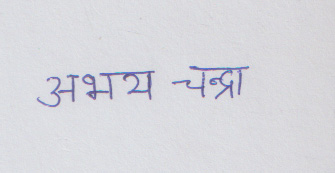 अभय चन्द्रा